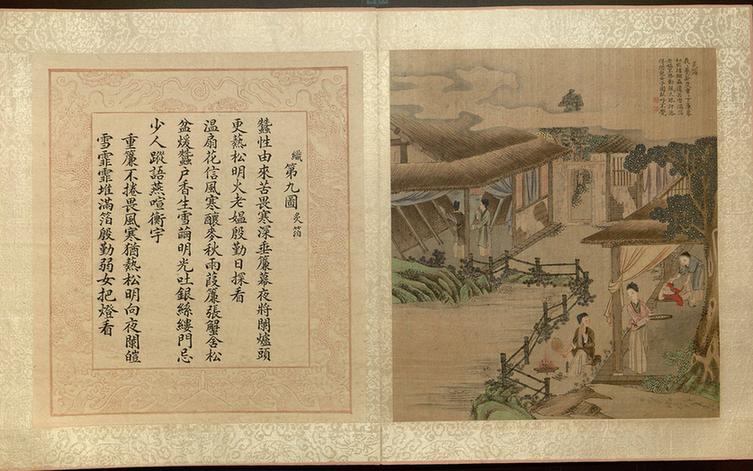 織第九圖 炙箔
蠶性由來苦畏寒深垂簾幕夜將闌爐頭
更爇松明火老媪殷勤日探看
溫扇花信風寒釀麥秋雨葭簾張蟹舍松
盆煖蠶戶香生雪繭明光吐銀絲縷門忌
少人蹤語燕喧衡宇
重簾不捲畏風寒猶爇松明向夜闌皚
雪霏霏堆滿箔殷勤弱女把燈看